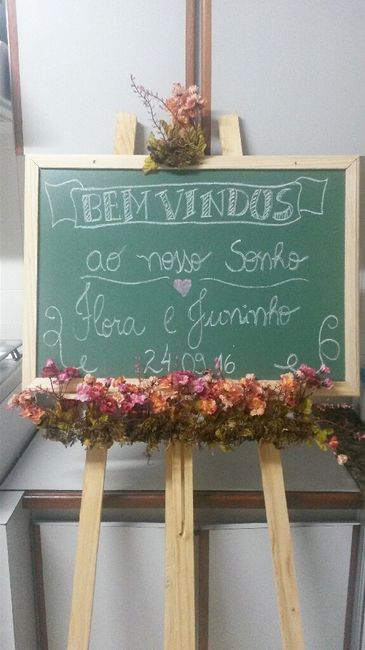 BEM VINDOS
ao nosso Sonho
Flora e Juninho
24.09.16